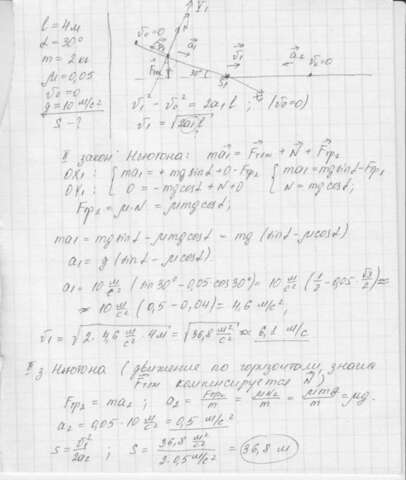 l = 4м
α = 30°
m = 2 кг
μ = 0,05
v₀ = 0
g = 10 м/с²
S - ?
Y₁
v₀ = 0
N
a₁
30°
v₁
a₂
v = 0
v₁² - v₀² = 2a₁l ; (v₀ = 0)
v₁ = √2a₁l ;
II закон Ньютона: ma₁ = Fтяж + N + Fтр₂
OX₁ : { ma₁ = + mg sinα + 0 - Fтр₂ { ma₁ = mg sinα - Fтр₁
OY₁ : 0 = - mg cosα + N + 0 N = mg cosα;
Fтр₂ = μ·N = μmg cosα;
ma₁ = mg sinα - μmg cosα = mg (sinα - μcosα)
a₁ = g (sinα - μcosα).
a₁ = 10 м/с² (sin 30° - 0,05·cos 30°) = 10 м/с² (1/2 - 0,05·√3/2) ≈
≈ 10 м/с² (0,5 - 0,04) = 4,6 м/с²,
v₁ = √2·4,6 м/с²·4м = √36,8 м²/с² ≈ 6,1 м/с
II з. Ньютона (движение по горизонтали, значит
Fтяж компенсируется N)
Fтр₂ = ma₂ ; a₂ = Fтр₂/m = μN₂/m = μmg/m = μg.
a₂ = 0,05·10 м/с² = 0,5 м/с²
S = v₁²/2a₂ ; S = 36,8 м²/с² / 2·0,5 м/с² = 36,8 м